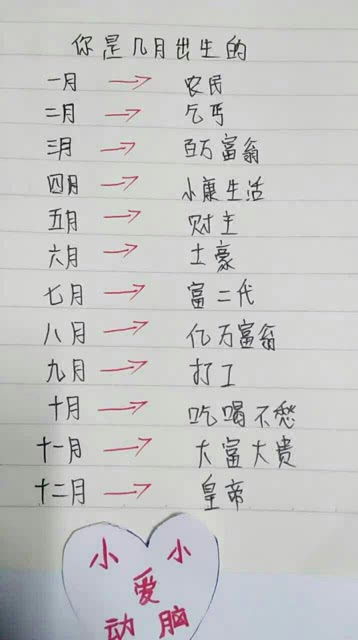 你是几月出生的
一月 → 农民
二月 → 乞丐
三月 → 百万富翁
四月 → 小康生活
五月 → 财主
六月 → 土豪
七月 → 富二代
八月 → 亿万富翁
九月 → 打工
十月 → 吃喝不愁
十一月 → 大富大贵
十二月 → 皇帝
小小
爱
动脑